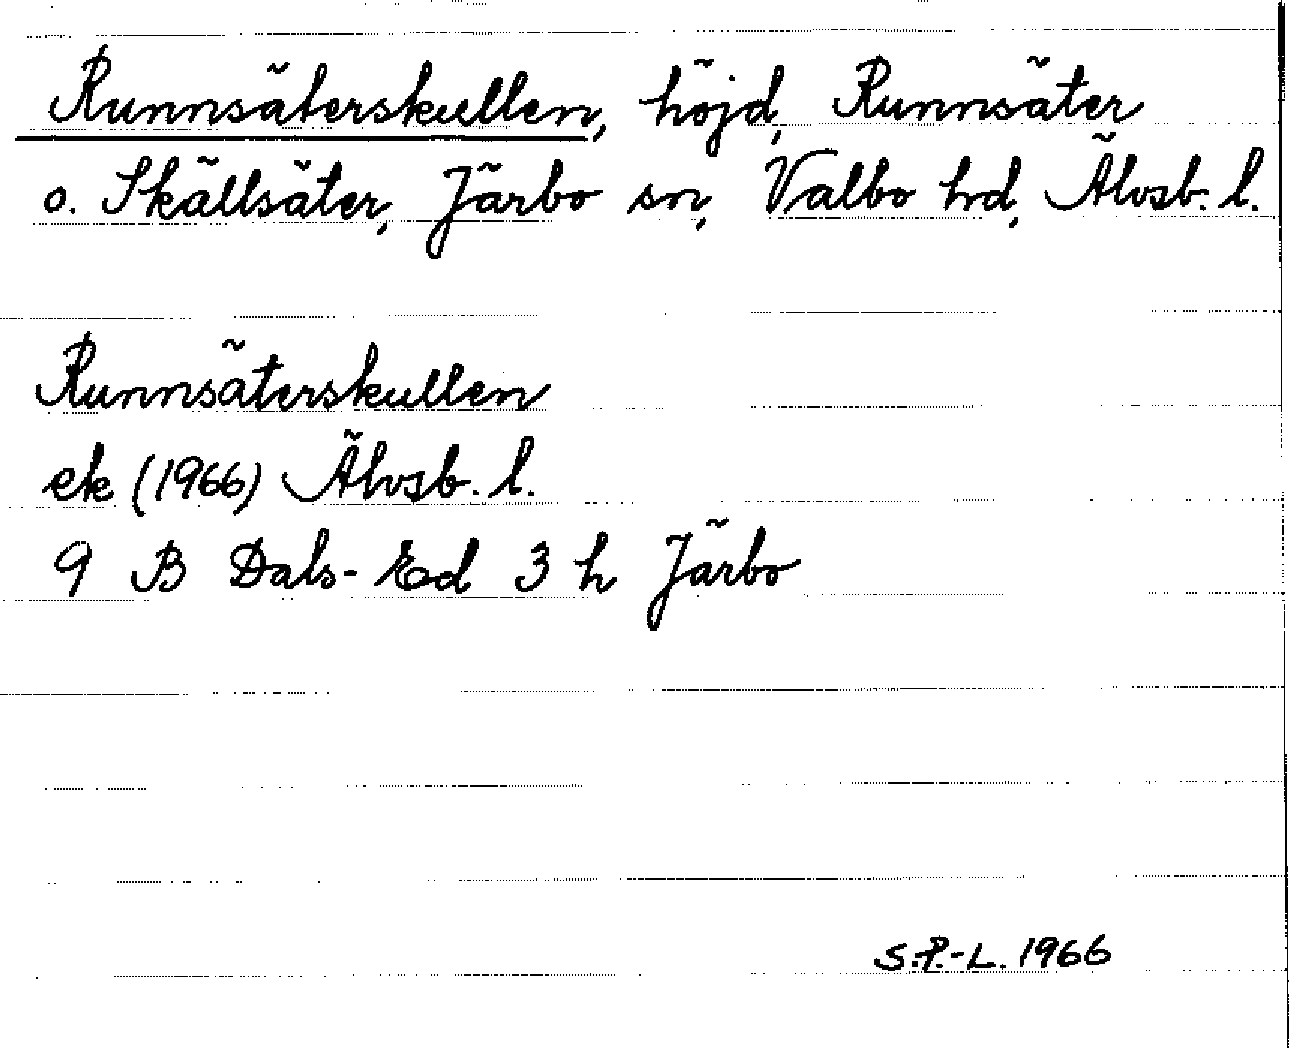 Runnsäterskullen, höjd, Runnsäter
o. Skällsäter, Järbo sn, Valbo hd, Älvsb. l.
Runnsäterskullen
ek (1966) Älvsb. l.
9 B Dals-Ed 3 h Järbo
S.P.-L. 1966